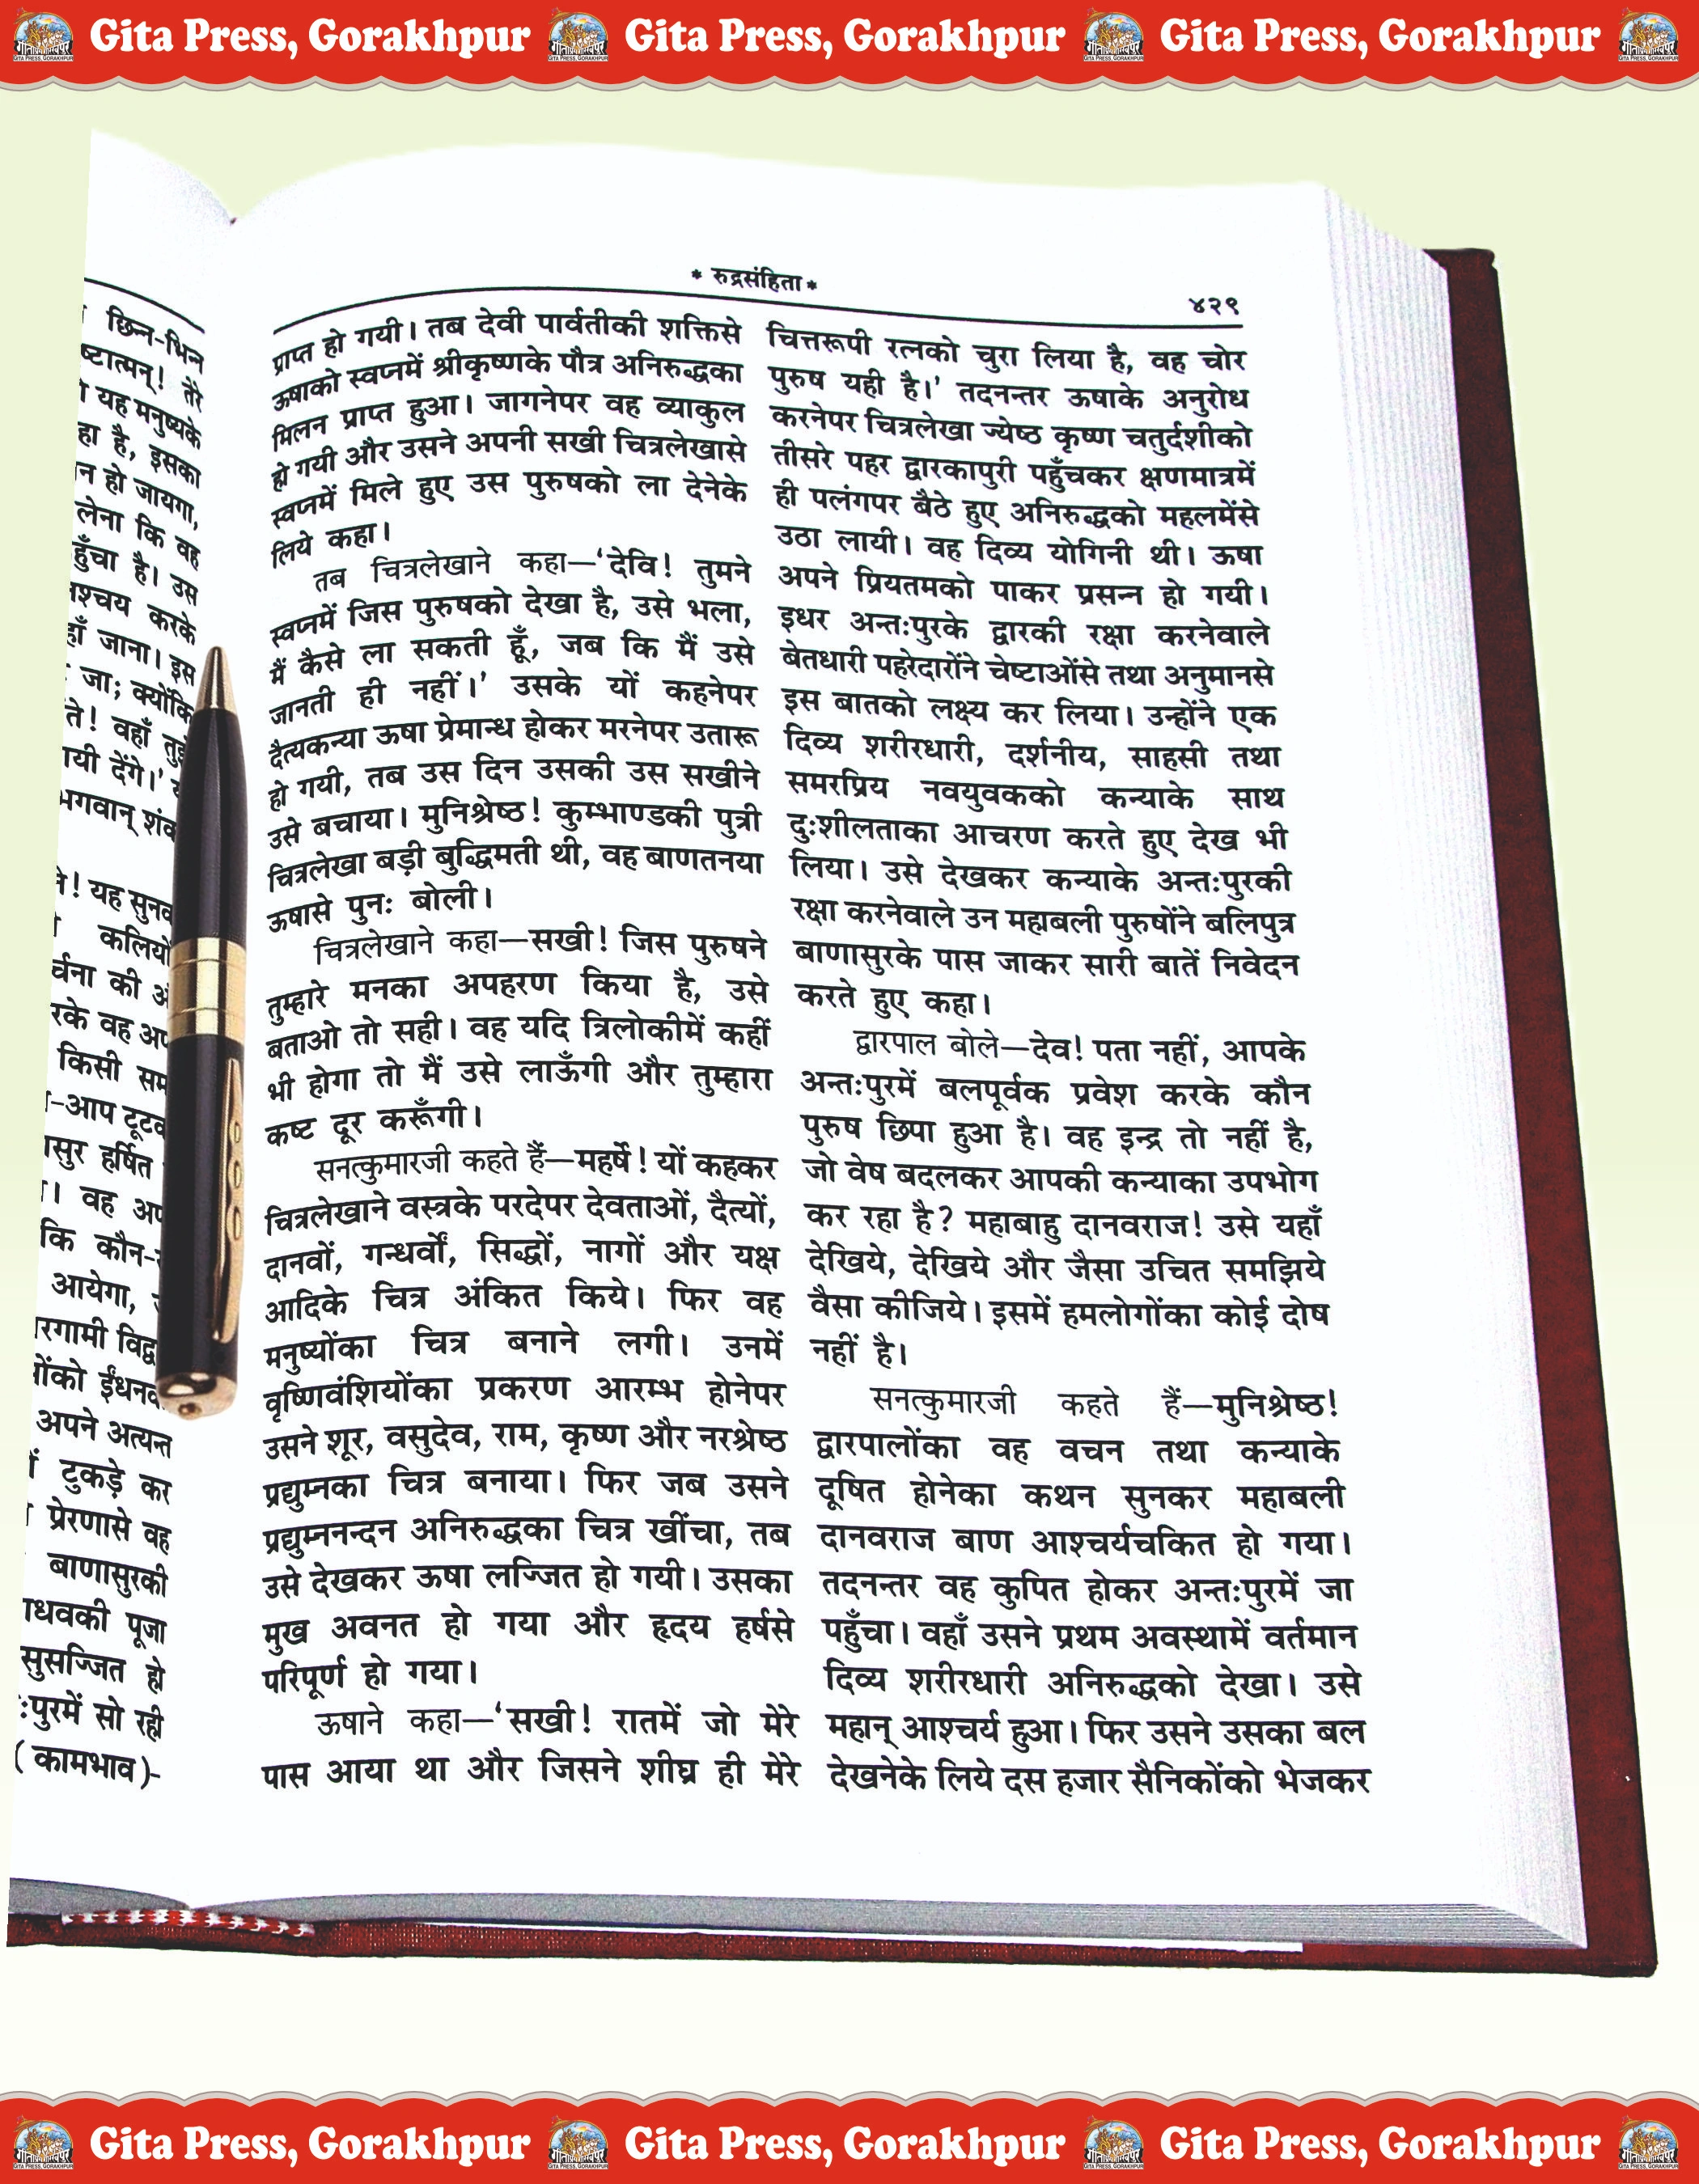 Gita Press, Gorakhpur Gita Press, Gorakhpur Gita Press, Gorakhpur
छिन्न-भिन्न
तेरे
यह मनुष्यके
है, इसका
हो जायगा,
लेना कि वह
है। उस
करके
जाना। इस
जा; क्योंकि
वहाँ
देंगे।'
यह
की
वह
किसी
आप
हर्षित
वह
कि कौन-
आयेगा,
ईंधन
अपने अत्यन्त
टुकड़े कर
प्रेरणासे वह
बाणासुरकी
पूजा
सुसज्जित हो
सो रही
(कामभाव)-
* रुद्रसंहिता *
४२९
प्राप्त हो गयी। तब देवी पार्वतीकी शक्तिसे
ऊषाको स्वप्नमें श्रीकृष्णके पौत्र अनिरुद्धका
मिलन प्राप्त हुआ। जागनेपर वह व्याकुल
हो गयी और उसने अपनी सखी चित्रलेखासे
स्वप्नमें मिले हुए उस पुरुषको ला देनेके
लिये कहा।
तब चित्रलेखाने कहा—‘देवि! तुमने
स्वप्नमें जिस पुरुषको देखा है, उसे भला,
मैं कैसे ला सकती हूँ, जब कि मैं उसे
जानती ही नहीं।’ उसके यों कहनेपर
दैत्यकन्या ऊषा प्रेमान्ध होकर मरनेपर उतारू
हो गयी, तब उस दिन उसकी उस सखीने
उसे बचाया। मुनिश्रेष्ठ! कुम्भाण्डकी पुत्री
चित्रलेखा बड़ी बुद्धिमती थी, वह बाणतनया
ऊषासे पुनः बोली।
चित्रलेखाने कहा—सखी! जिस पुरुषने
तुम्हारे मनका अपहरण किया है, उसे
बताओ तो सही। वह यदि त्रिलोकीमें कहीं
भी होगा तो मैं उसे लाऊँगी और तुम्हारा
कष्ट दूर करूँगी।
सनत्कुमारजी कहते हैं—महर्षे! यों कहकर
चित्रलेखाने वस्त्रके परदेपर देवताओं, दैत्यों,
दानवों, गन्धर्वों, सिद्धों, नागों और यक्ष
आदिके चित्र अंकित किये। फिर वह
मनुष्योंका चित्र बनाने लगी। उनमें
वृष्णिवंशियोंका प्रकरण आरम्भ होनेपर
उसने शूर, वसुदेव, राम, कृष्ण और नरश्रेष्ठ
प्रद्युम्नका चित्र बनाया। फिर जब उसने
प्रद्युम्ननन्दन अनिरुद्धका चित्र खींचा, तब
उसे देखकर ऊषा लज्जित हो गयी। उसका
मुख अवनत हो गया और हृदय हर्षसे
परिपूर्ण हो गया।
ऊषाने कहा—‘सखी! रातमें जो मेरे
पास आया था और जिसने शीघ्र ही मेरे
चित्तरूपी रत्नको चुरा लिया है, वह चोर
पुरुष यही है।’ तदनन्तर ऊषाके अनुरोध
करनेपर चित्रलेखा ज्येष्ठ कृष्ण चतुर्दशीको
तीसरे पहर द्वारकापुरी पहुँचकर क्षणमात्रमें
ही पलंगपर बैठे हुए अनिरुद्धको महलमेंसे
उठा लायी। वह दिव्य योगिनी थी। ऊषा
अपने प्रियतमको पाकर प्रसन्न हो गयी।
इधर अन्तःपुरके द्वारकी रक्षा करनेवाले
बेतधारी पहरेदारोंने चेष्टाओंसे तथा अनुमानसे
इस बातको लक्ष्य कर लिया। उन्होंने एक
दिव्य शरीरधारी, दर्शनीय, साहसी तथा
समरप्रिय नवयुवकको कन्याके साथ
दुःशीलताका आचरण करते हुए देख भी
लिया। उसे देखकर कन्याके अन्तःपुरकी
रक्षा करनेवाले उन महाबली पुरुषोंने बलिपुत्र
बाणासुरके पास जाकर सारी बातें निवेदन
करते हुए कहा।
द्वारपाल बोले—देव! पता नहीं, आपके
अन्तःपुरमें बलपूर्वक प्रवेश करके कौन
पुरुष छिपा हुआ है। वह इन्द्र तो नहीं है,
जो वेष बदलकर आपकी कन्याका उपभोग
कर रहा है? महाबाहु दानवराज! उसे यहाँ
देखिये, देखिये और जैसा उचित समझिये
वैसा कीजिये। इसमें हमलोगोंका कोई दोष
नहीं है।
सनत्कुमारजी कहते हैं—मुनिश्रेष्ठ!
द्वारपालोंका वह वचन तथा कन्याके
दूषित होनेका कथन सुनकर महाबली
दानवराज बाण आश्चर्यचकित हो गया।
तदनन्तर वह कुपित होकर अन्तःपुरमें जा
पहुँचा। वहाँ उसने प्रथम अवस्थामें वर्तमान
दिव्य शरीरधारी अनिरुद्धको देखा। उसे
महान् आश्चर्य हुआ। फिर उसने उसका बल
देखनेके लिये दस हजार सैनिकोंको भेजकर
Gita Press, Gorakhpur Gita Press, Gorakhpur Gita Press, Gorakhpur